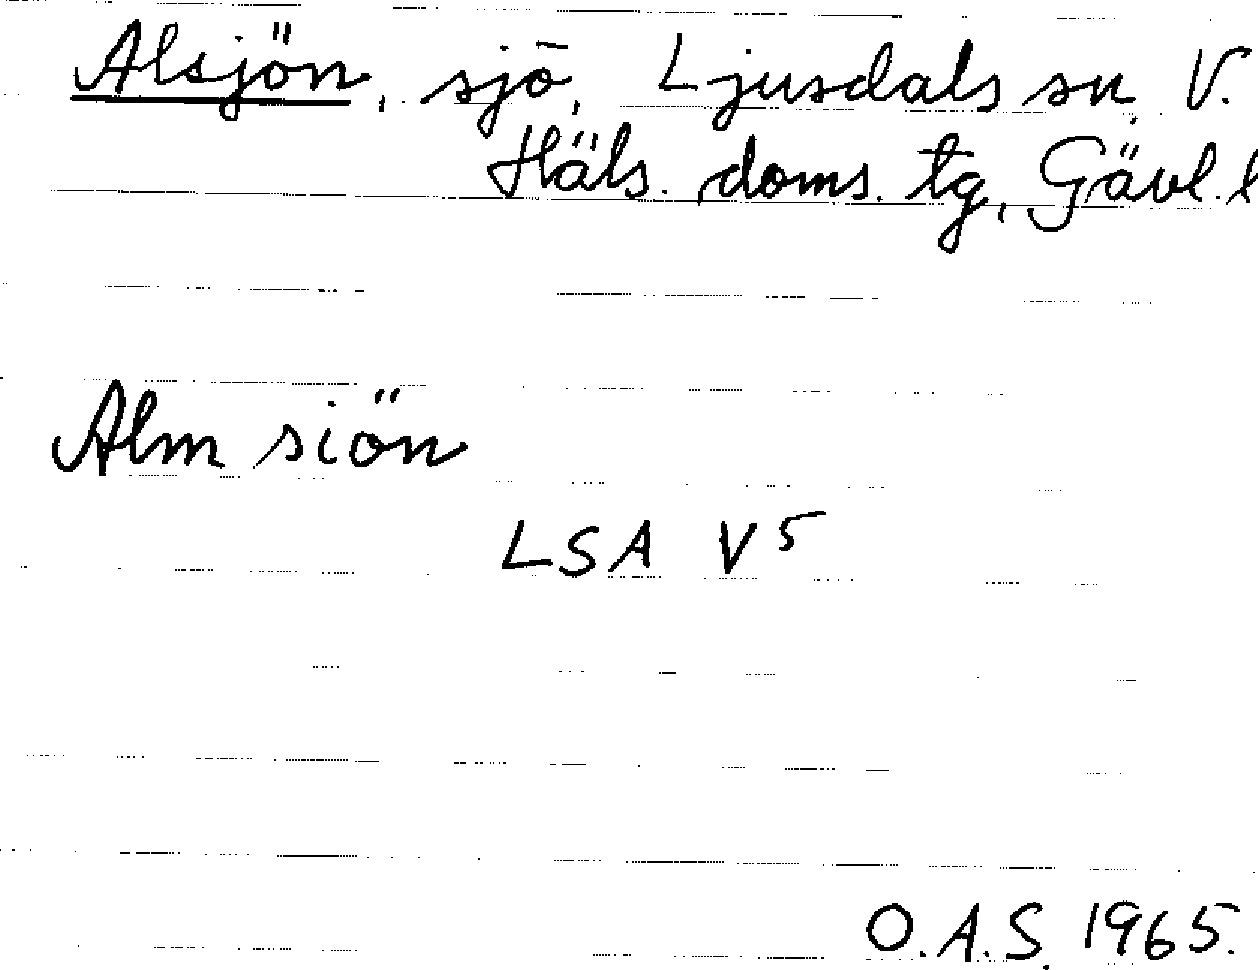 Alsjön, sjö, Ljusdals sn, V.
Häls. doms. tg, Gävl. l
Alm siön
LSA V5
O.A.S. 1965.